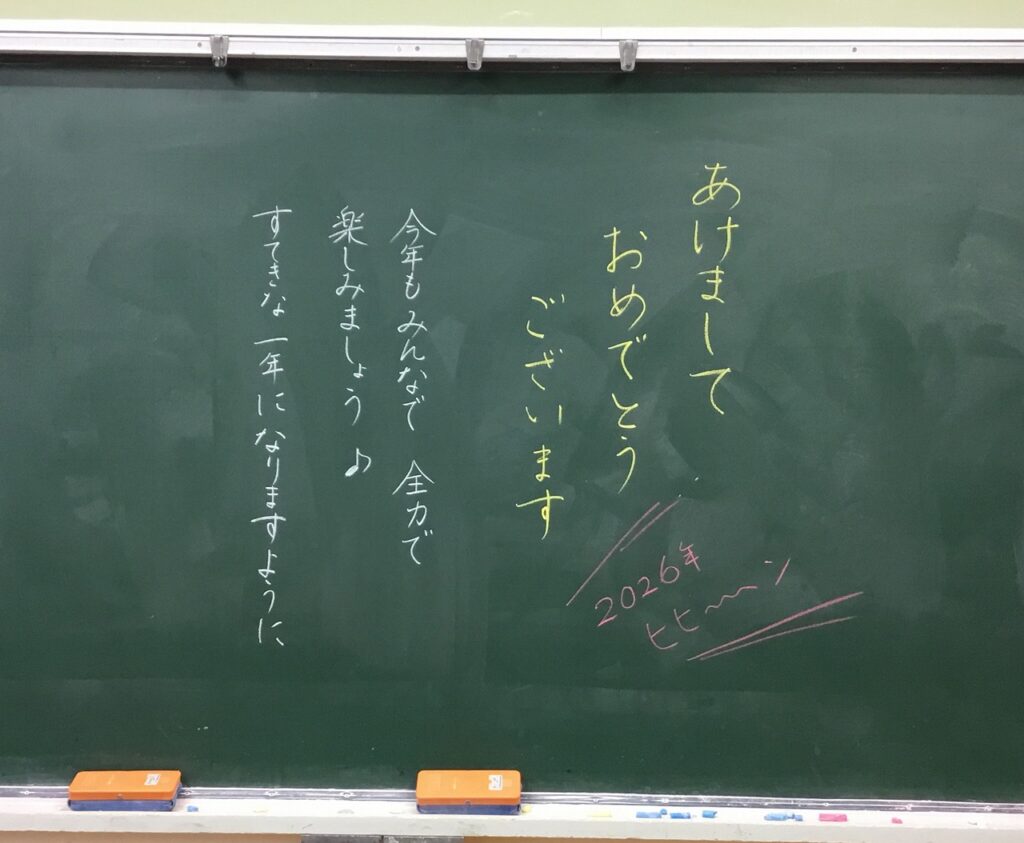 あけまして
おめでとう
ございます
2026年
ヒヒ〜〜ン
今年もみんなで 全力で
楽しみましょう♪
すてきな一年になりますように